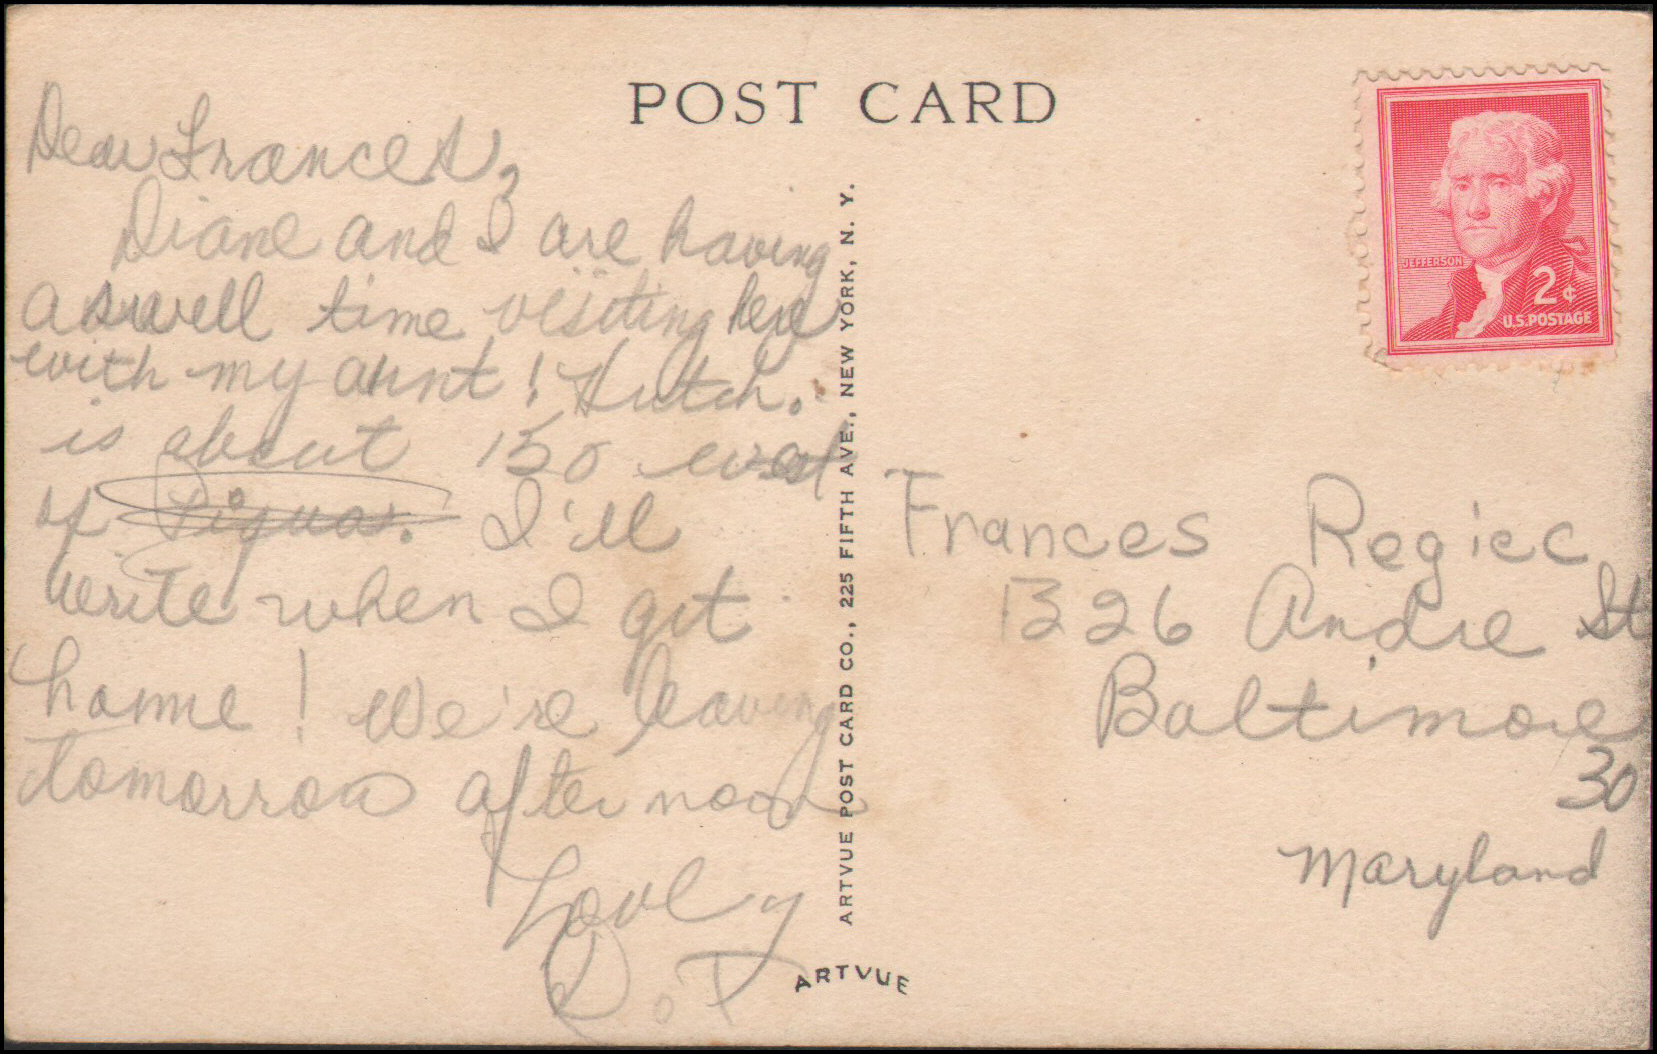 POST CARD
Dear Frances,
Diane and I are having
a swell time visiting here
with my aunt! Hutch.
is about 150 west
of Piqua. I'll
write when I get
home! We're leaving
tomorrow afternoon
Love
D.T
ARTVUE POST CARD CO., 225 FIFTH AVE., NEW YORK, N. Y.
ARTVUE
JEFFERSON
2¢
U.S. POSTAGE
Frances Regiec
1326 Andre St
Baltimore
30
Maryland